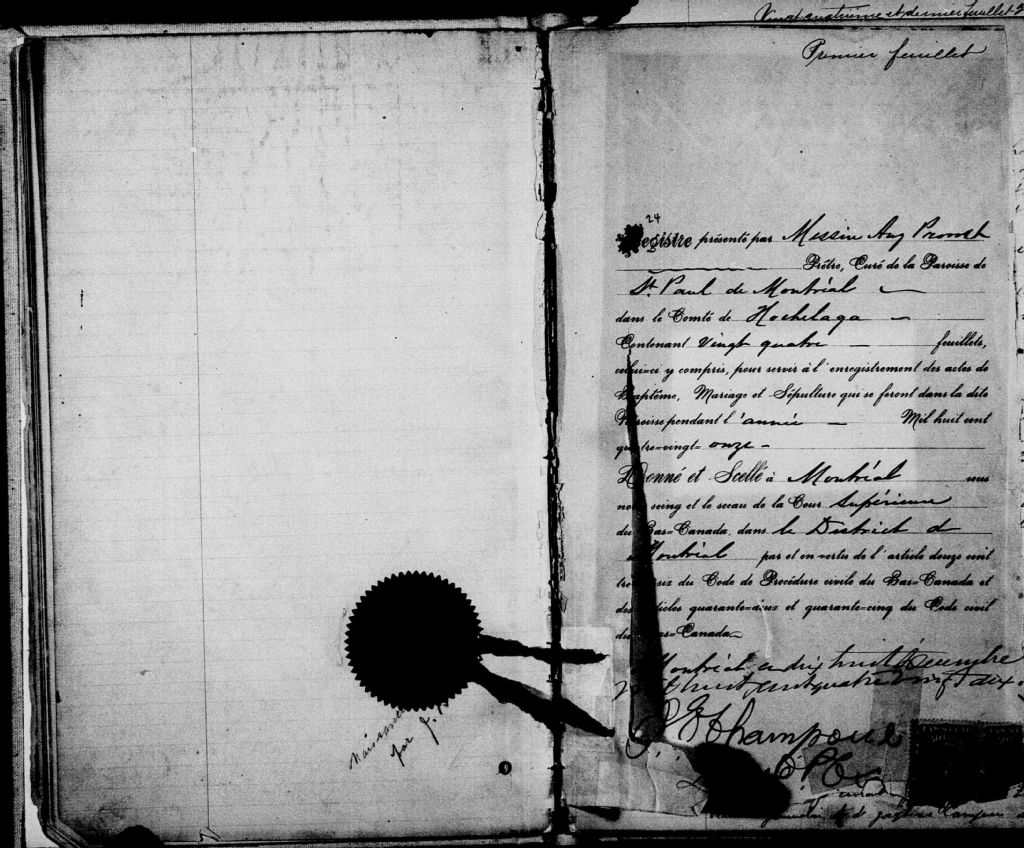 Vingt quatrième et dernier feuillet
Premier feuillet
24
Registre présenté par Messire Aug Provost
Prêtre, Curé de la Paroisse de
St. Paul de Montréal
dans le Comté de Hochelaga
Contenant vingt quatre feuillets,
celui-ci y compris, pour servir à l'enregistrement des actes de
Baptême, Mariage et Sépulture qui se feront dans la dite
Paroisse pendant l'année Mil huit cent
quatre-vingt-onze
Donné et Scellé à Montréal sous
notre seing et le sceau de la Cour Supérieure
du Bas-Canada, dans le District de
Montréal par et en vertu de l'article douze cent
du Code de Procédure civile du Bas-Canada et
des articles quarante-deux et quarante-cinq du Code civil
du Bas-Canada
Montréal ce dix huit Décembre
mil huit cent quatre vingt dix
Champoux
naissance
par J.